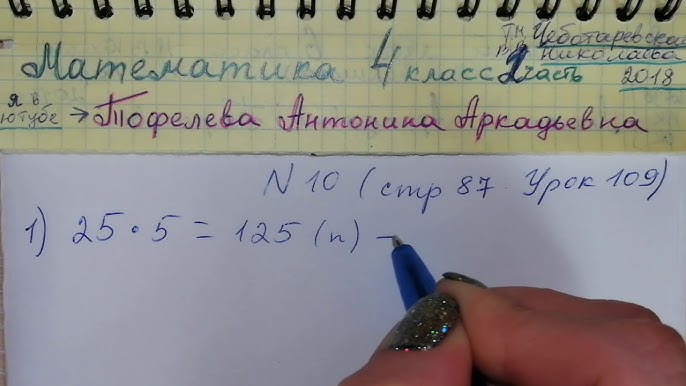 Т.Н. Чеботаревская
Математика 4 класс 2 часть
В.В. Николаева
2018
Я в
ютубе → Тофелева Антонина Аркадьевна
N 10 (стр 87. Урок 109)
1) 25 · 5 = 125 (п) –